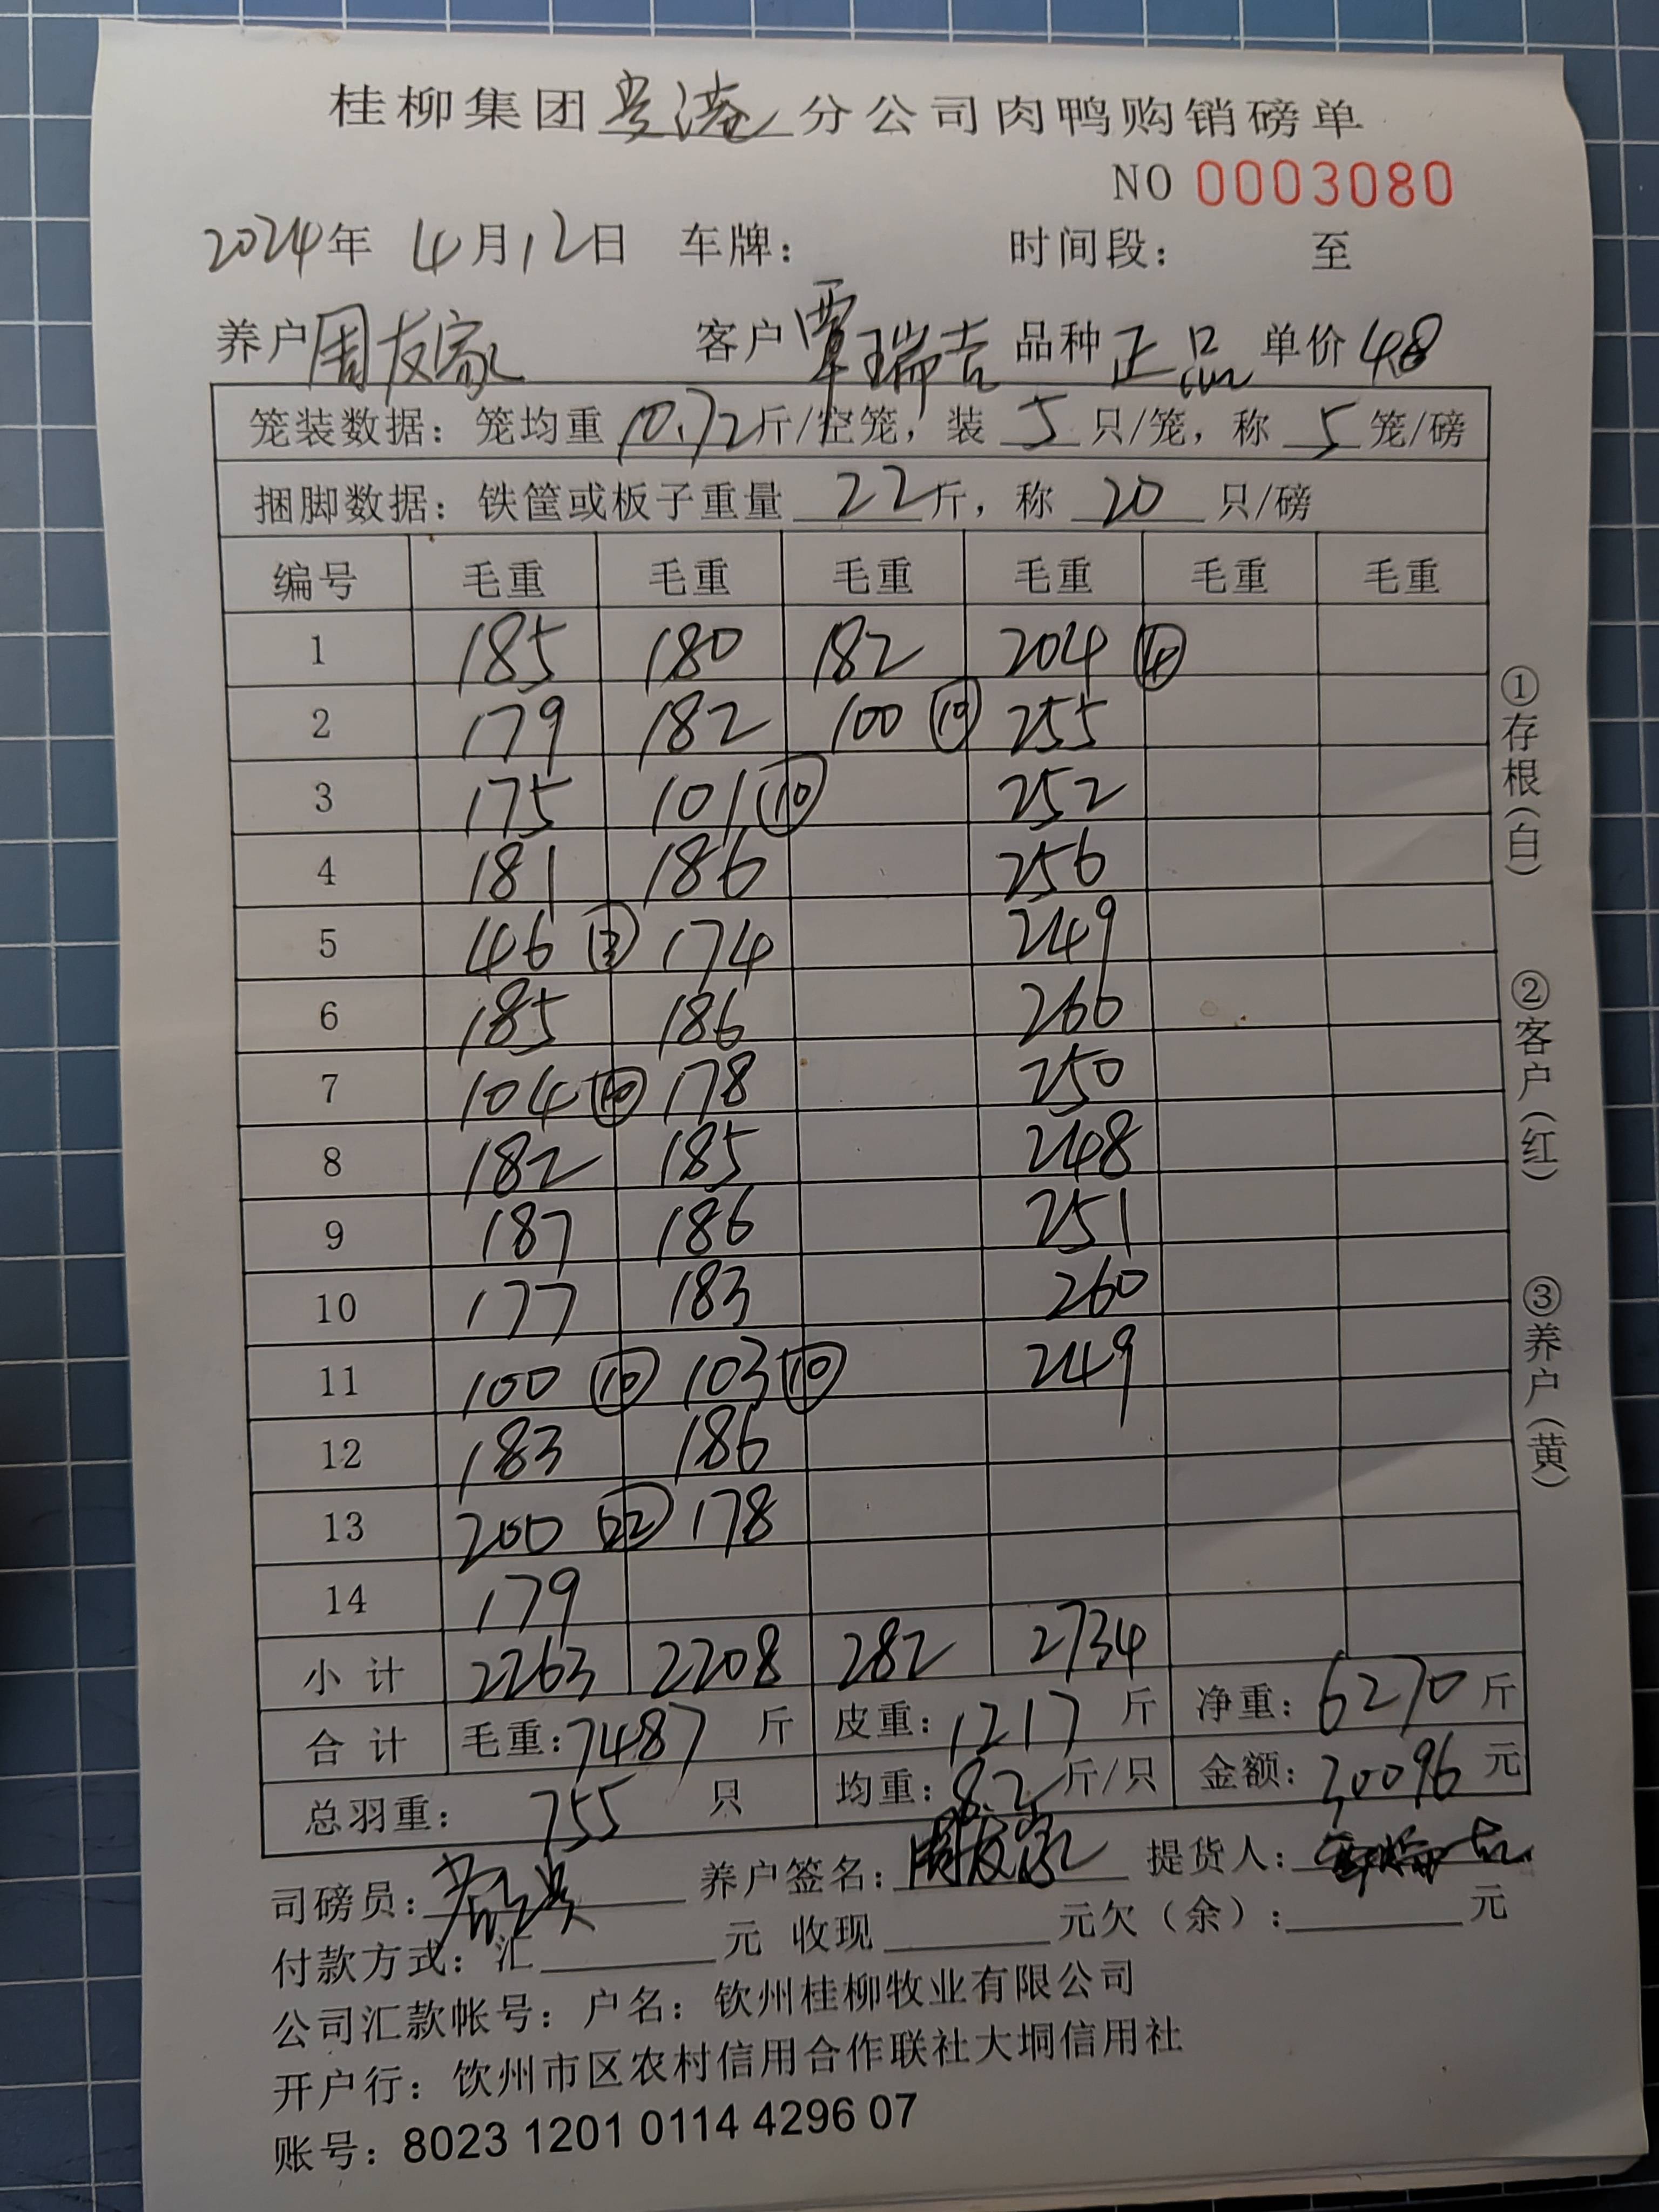 桂柳集团贵港分公司肉鸭购销磅单
NO 0003080
2024年 4月12日 车牌： 时间段： 至
养户周友家 客户覃瑞吉 品种正品 单价4.8
笼装数据：笼均重10.72斤/空笼，装5只/笼，称5笼/磅
捆脚数据：铁筐或板子重量22斤，称20只/磅
编号 毛重 毛重 毛重 毛重 毛重 毛重
1 185 180 182 204 ④
2 179 182 100 ⑩ 255
3 175 101 ⑩ 252
4 181 186 256
5 46 174 249
6 185 186 260
7 104 ⑩ 178 250
8 182 185 248
9 187 186 251
10 177 183 260
11 100 ⑩ 103 ⑩ 249
12 183 186
13 200 ㉒ 178
14 179
小计 2263 2208 282 2734
合计 毛重：7487 斤 皮重：1217 斤 净重：6270 斤
总羽重： 755 只 均重：8.2斤/只 金额：30096 元
司磅员： 养户签名：周友家 提货人：覃瑞吉
付款方式：汇 元 收现 元欠（余）： 元
公司汇款帐号：户名：钦州桂柳牧业有限公司
开户行：钦州市区农村信用合作联社大垌信用社
账号：8023 1201 0114 4296 07
①存根（白）
②客户（红）
③养户（黄）